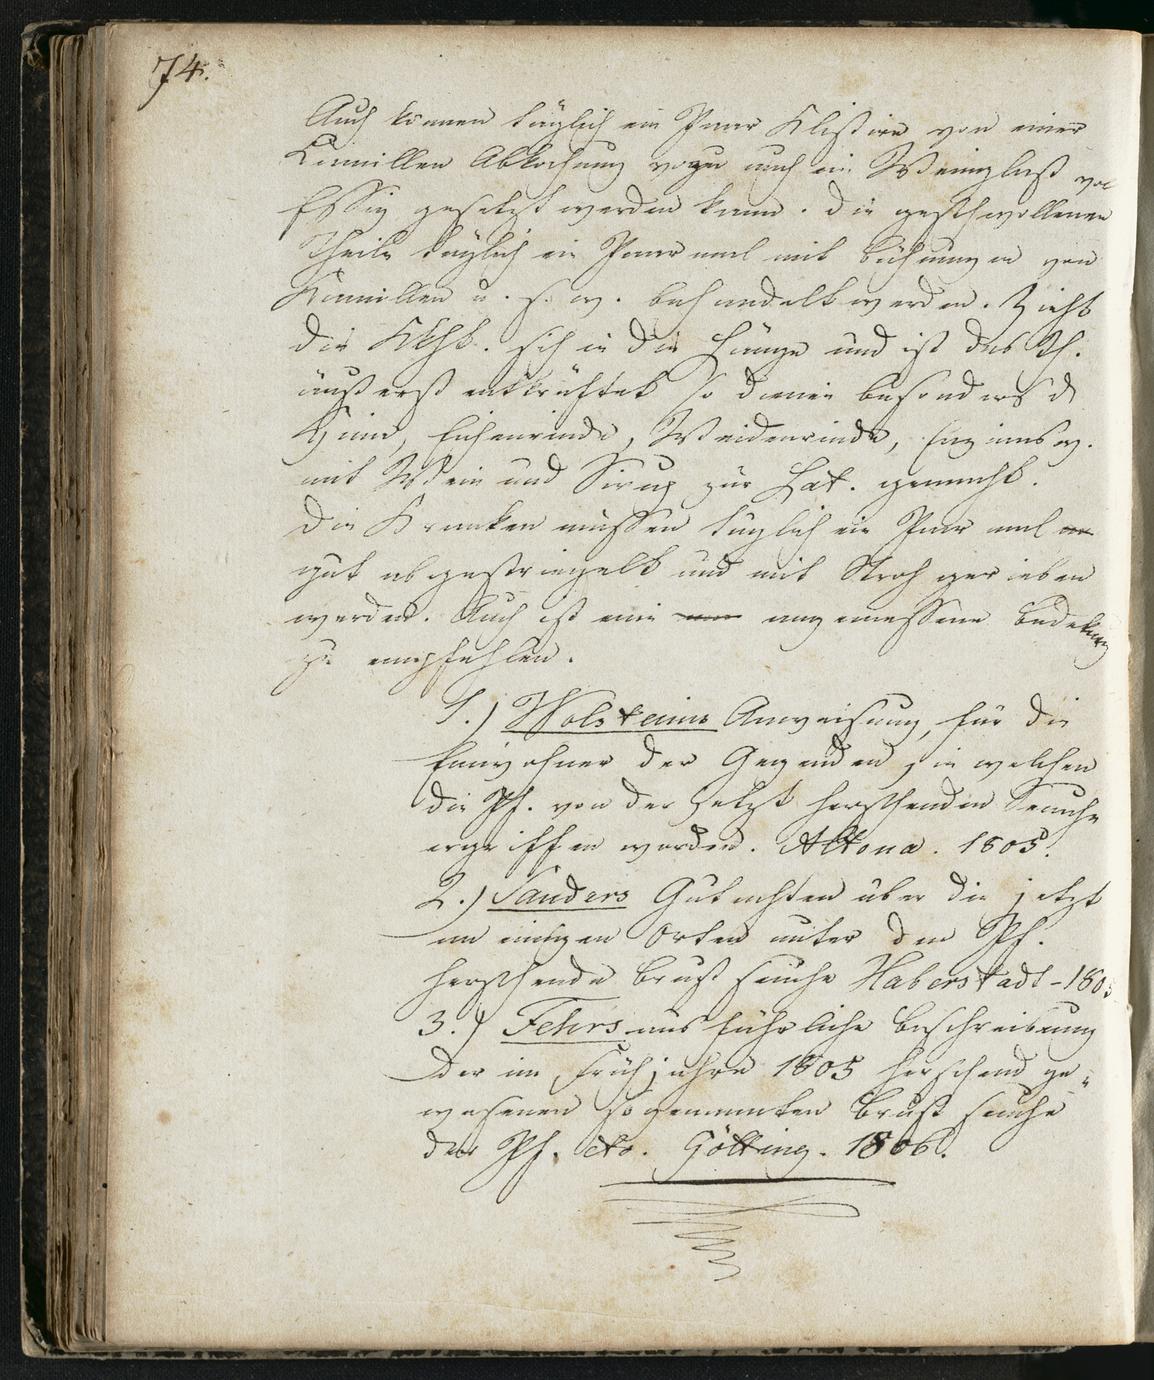 74.
Auch können täglich ein Paar Klistire von einer
Kamillen Abkochung wozu auch ein Weinglaß vol
Essig gesetzt werden kann. Die geschwollenen
Theile täglich ein Paar mal mit Bähungen von
Kamillen u. s. w. behandelt werden. Zieht
die Kkht. sich in die Länge und ist das Th.
äußerst entkräftet so dienen besonders d
China, Eichenrinde, Weidenrinde,
mit Wein und Sirup zur Lat. gemacht.
Die Kranken müssen täglich ein Paar mal
gut abgestriegelt und mit Stroh gerieben
werden. Auch ist eine angemessene Bedekung
zu empfehlen.
1.) Wolsteins Anweisung, für die
Einwohner der Gegenden, in welchen
die Pf. von der jetzt herschenden Seuche
ergriffen worden. Altona. 1805.
2.) Sanders Gutachten über die jetzt
an einigen Orten unter den Pf.
herschende Brust seuche Haberstadt - 1805
3.) Fehrs ausführliche Beschreibung
der im Frühjahre 1805 herschend ge„
wesenen sogenannten Brust seuche
der Pf. etc. Götting. 1806.